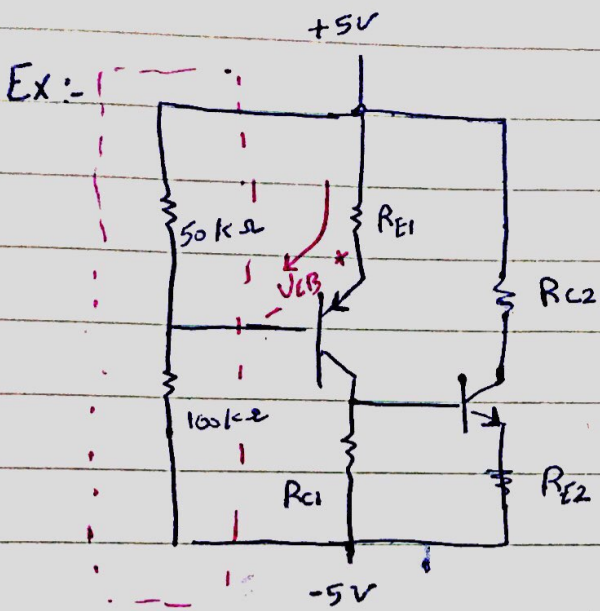 +5V
Ex:-
50kΩ
RE1
VEB
*
RC2
100kΩ
RC1
RE2
-5V